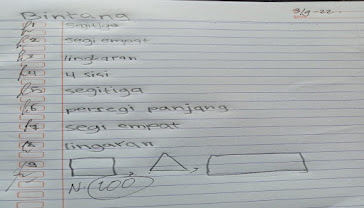 Bintang
3/9-22
1 segitiga
2 segi empat
3 lingkaran
4 4 sisi
5 segitiga
6 persegi panjang
7 segi empat
8 lingaran
9
N 100